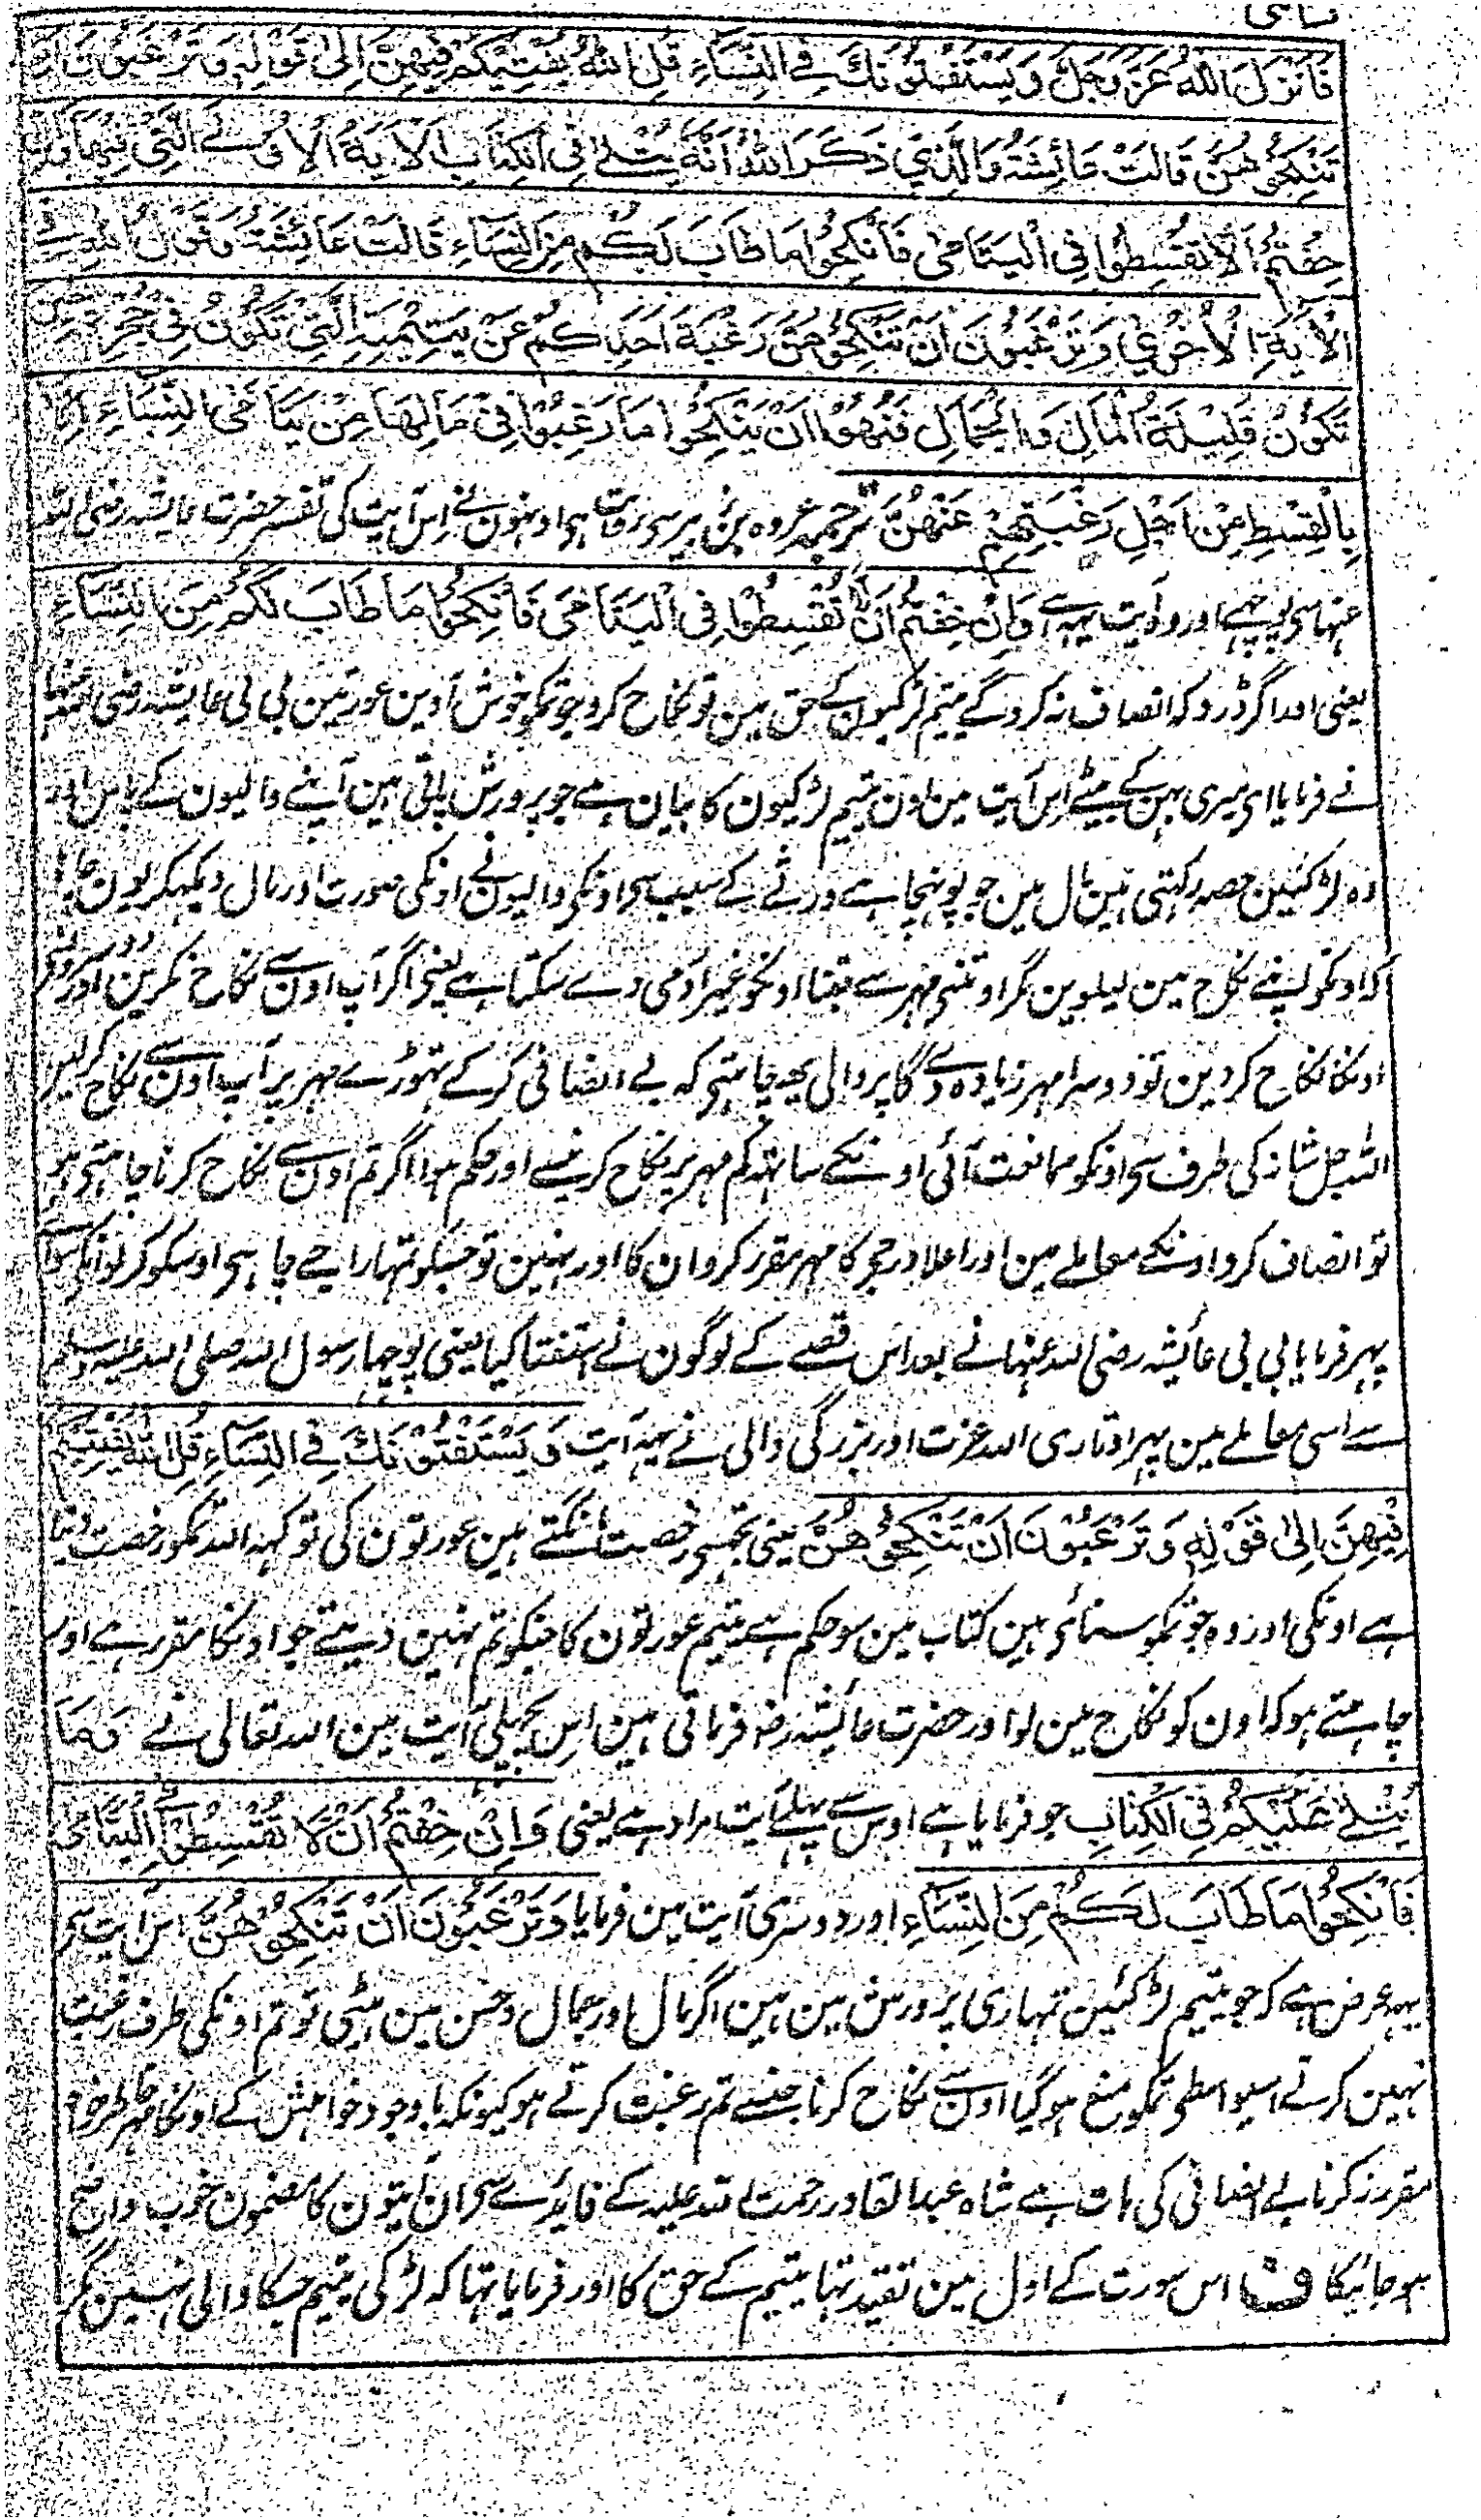 فَاَنْزَلَ اللّٰهُ عَزَّ وَجَلَّ وَيَسْتَفْتُوْنَكَ فِي النِّسَاءِ قُلِ اللّٰهُ يُفْتِيْكُمْ فِيْهِنَّ اِلٰى قَوْلِهٖ وَتَرْغَبُوْنَ اَنْ
تَنْكِحُوْهُنَّ قَالَتْ عَائِشَةُ وَالَّذِيْ ذَكَرَ اللّٰهُ اَنَّهٗ يُتْلٰى فِي الْكِتَابِ الْاٰيَةُ الْاُوْلٰى الَّتِيْ فِيْهَا وَاِنْ
خِفْتُمْ اَلَّا تُقْسِطُوْا فِي الْيَتَامٰى فَانْكِحُوْا مَا طَابَ لَكُمْ مِنَ النِّسَاءِ قَالَتْ عَائِشَةُ وَقَوْلُ اللّٰهِ فِي
الْاٰيَةِ الْاُخْرٰى وَتَرْغَبُوْنَ اَنْ تَنْكِحُوْهُنَّ رَغْبَةَ اَحَدِكُمْ عَنْ يَتِيْمَتِهِ الَّتِيْ تَكُوْنُ فِيْ حُجْرِهٖ حِيْنَ
تَكُوْنُ قَلِيْلَةَ الْمَالِ وَالْجَمَالِ فَنُهُوْا اَنْ يَنْكِحُوْا مَا رَغِبُوْا فِيْ مَالِهَا مِنْ يَتَامَى النِّسَاءِ اِلَّا
بِالْقِسْطِ مِنْ اَجْلِ رَغْبَتِهِمْ عَنْهُنَّ ترجمہ عروہ بن زبیر سی روایت ہی اونہون نے اِس آیت کی تفسیر حضرت عایشہ رضی اللہ
عنہا سی پوچھے اور وہ آیت یہہ ہے وَاِنْ خِفْتُمْ اَنْ لَّا تُقْسِطُوْا فِی الْیَتَامٰی فَانْكِحُوْا مَا طَابَ لَكُمْ مِنَ النِّسَاءِ
یعنی اور اگر ڈرو کہ انصاف نہ کروگے یتیم لڑکیون کے حق مین تو نکاح کرو جو تمکو خوش آوین عورتین بی بی عایشہ رضی اللہ عنہا
نے فرمایا ای میری بہن کے بیٹے اِس آیت مین اون یتیم لڑکیون کا بیان ہے جو پرورش پاتی ہین اَپنے والیون کے پاس اور
وہ لڑکئین حصہ رکہتی ہین مال مین جو پونہچا ہے ورثے کے سبب سی اونکی والیون نے اونکی صورت اور مال دیکہکر یون چاہا
کہ اونکو اپنے نکاح مین لیلوین مگر اوتنی مہر سے جتنا اونکو غیر آدمی دے سکتا ہے یعنی اگر آپ اون سے نکاح نکرین اور دوسریسی
اونکا نکاح کردین تو دوسرا مہر زیادہ دے گا پر والی یہہ چاہتی کہ بے انصافی کرکے تہوڑے مہر پر آپ اون سے نکاح کرلین
اللہ جل شانہ کی طرف سی اونکو ممانعت آئی اونکے ساتہہ کم مہر پر نکاح کرنیسے اور حکم ہوا اگر تم اون سے نکاح کرنا چاہتی ہو
تو انصاف کرو اونکے معاملے مین اور اعلا درجی کا مہر مقرر کرو ان کا اور نہین تو جسکو تمہارا جی چاہی اوسکو کرلو انکی سوا
پہر فرمایا بی بی عایشہ رضی اللہ عنہا نے بعد اس قصے کے لوگون نے استفتا کیا یعنی پوچہا رسول اللہ صلی اللہ علیہ وسلم
سے اسی معاملے مین پہر اوتاری اللہ عزت اور بزرگی والی نے یہہ آیت وَيَسْتَفْتُوْنَكَ فِي النِّسَاءِ قُلِ اللّٰهُ يُفْتِيْكُمْ
فِيْهِنَّ اِلٰى قَوْلِهٖ وَتَرْغَبُوْنَ اَنْ تَنْكِحُوْهُنَّ یعنی تجہسی رخصت مانگتے ہین عورتون کی تو کہہ اللہ تمکو رخصت دیتا
ہے اونکی اور وہ جو تمکو سنائی ہین کتاب مین سو حکم ہے یتیم عورتون کا جنکو تم نہین دیتے جو اونکا مقرر ہے اور
چاہتے ہو کہ اون کو نکاح مین لو اور حضرت عایشہ رضہ فرماتی ہین اِس پچہلی آیت مین اللہ تعالی نے وَمَا
يُتْلٰى عَلَيْكُمْ فِي الْكِتَابِ جو فرمایا ہے اوس سے پہلے آیت مراد ہے یعنی وَاِنْ خِفْتُمْ اَنْ لَا تُقْسِطُوْا فِي الْيَتَامٰى
فَانْكِحُوْا مَا طَابَ لَكُمْ مِنَ النِّسَاءِ اور دوسری آیت مین فرمایا وَتَرْغَبُوْنَ اَنْ تَنْكِحُوْهُنَّ اس آیت سی
یہہ غرض ہے کہ جو یتیم لڑکئین تمہاری پرورش مین ہین اگر مال اور جمال وحسن مین ہیٹی تو تم اونکی طرف رغبت
نہین کرتے اسیواسطی تمکو منع ہو گیا اون سے نکاح کرنا جنسے تم رغبت کرتے ہو کیونکہ باوجود خواہش کے اونکا مہر خاطر خواہ
مقرر نہ کرنا بے انصافی کی بات ہے شاہ عبدالقادر رحمت اللہ علیہ کے فایدے سی ان آیتون کا مضمون خوب واضح
ہو جائیگا ف اس سورت کے اول مین تقید تہا یتیم کے حق کا اور فرمایا تہا کہ لڑکی یتیم جسکا والی نہین مگر